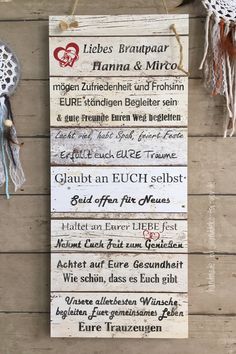 Liebes Brautpaar
Hanna & Mirco
mögen Zufriedenheit und Frohsinn
EURE ständigen Begleiter sein
& gute Freunde Euren Weg begleiten
Lacht viel, habt Spaß, feiert Feste
Erfüllt euch EURE Träume
Glaubt an EUCH selbst
Seid offen für Neues
Haltet an Eurer LIEBE fest
Nehmt Euch Zeit zum Genießen
Achtet auf Eure Gesundheit
Wie schön, dass es Euch gibt
Unsere allerbesten Wünsche
begleiten Euer gemeinsames Leben
Eure Trauzeugen